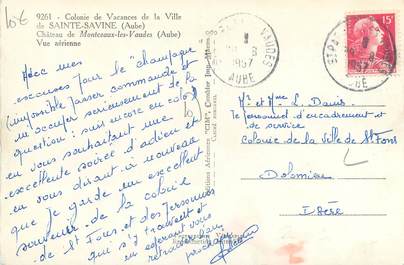 10€
9261 - Colonie de Vacances de la Ville
de SAINTE-SAVINE (Aube)
Château de Montceaux-les-Vaudes (Aube)
Vue aérienne
Avec mes
excuses pour le "champagne"
(impossible passer commande et
m'occuper sérieusement de la
question : suis encore en colo)
en vous souhaitant une
excellente soirée d'adieu et
en vous disant à nouveau
que je garde un excellent
souvenir de la colonie
de St Fons et des personnes
qui s'y trouvent et
en espérant vous
retrouver
VAUDES
1957
AUBE
1957
AUBE
15F
Mr et Mme L. Davis
le personnel d'encadrement et
de service
Colonie de la Ville de St Fons
Dolomieu
Isère
Editions Aériennes "CIM", Combier Imp. Mâcon